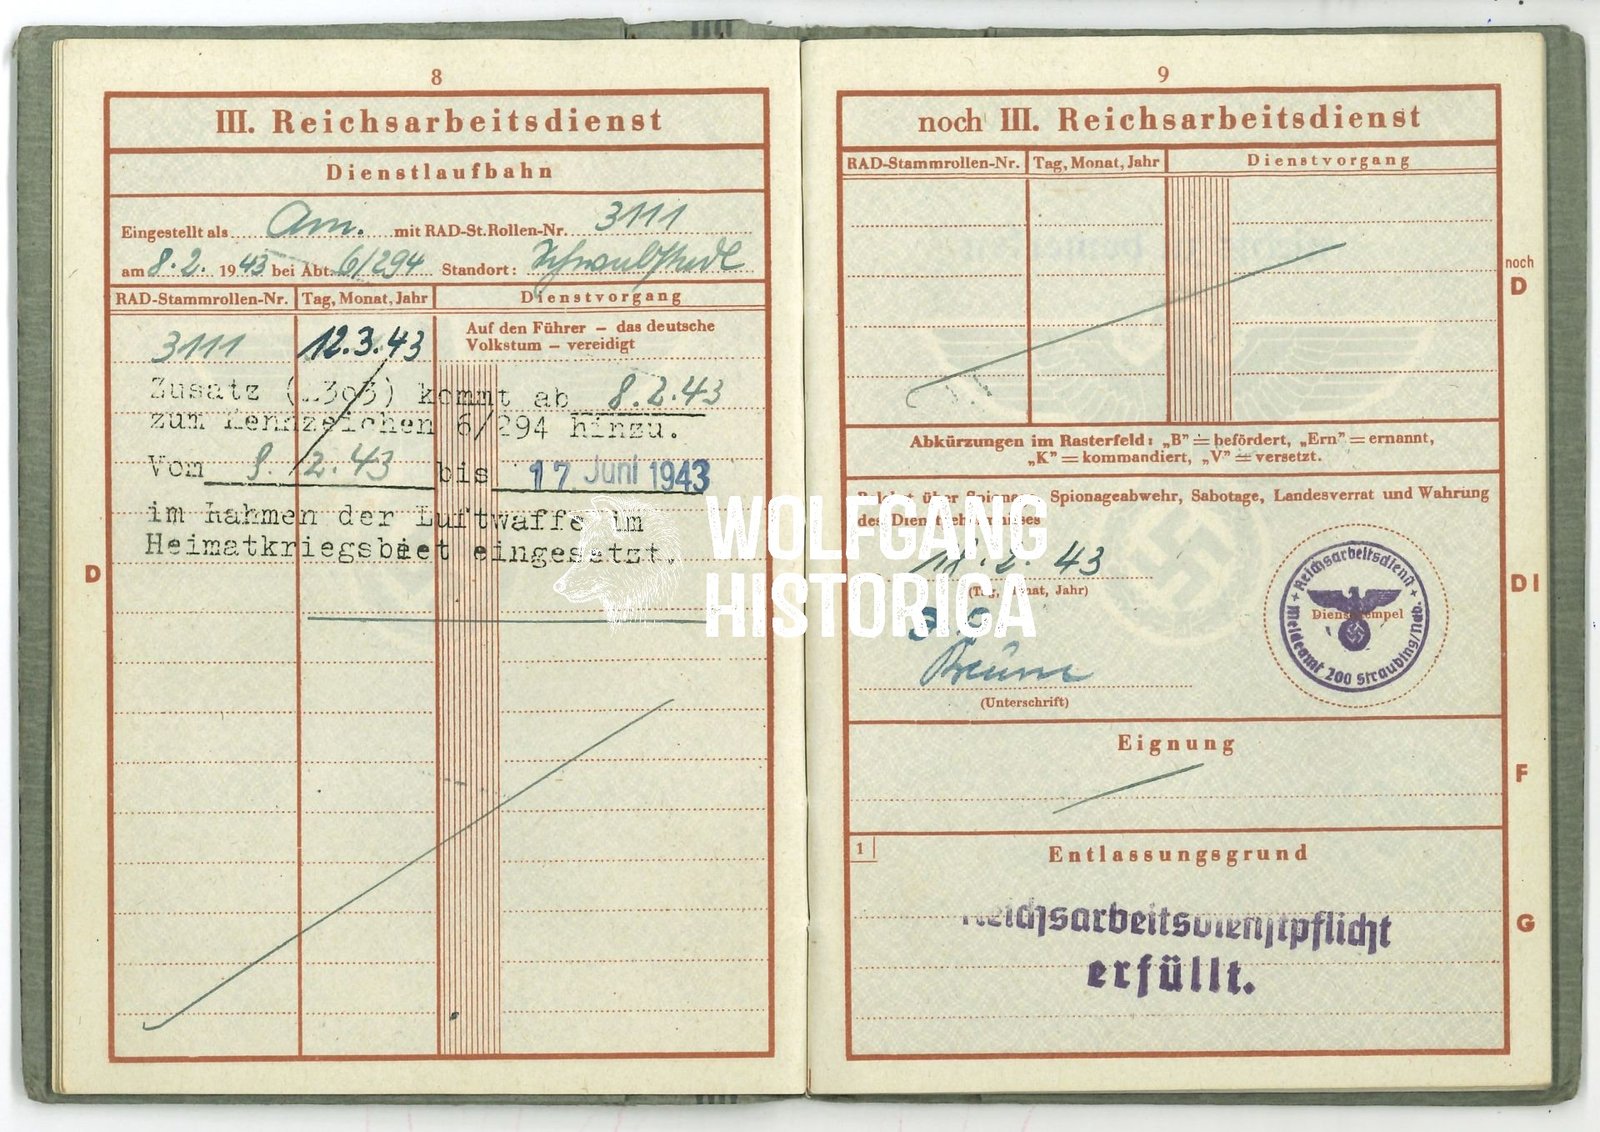 8
III. Reichsarbeitsdienst
Dienstlaufbahn
Eingestellt als Am. mit RAD-St.Rollen-Nr. 3111
am 8.2. 1943 bei Abt. 6/294 Standort:
RAD-Stammrollen-Nr. Tag, Monat, Jahr Dienstvorgang
3111 12.3.43 Auf den Führer – das deutsche
Volkstum – vereidigt
Zusatz (L303) kommt ab 8.2.43
zum Kennzeichen 6/294 hinzu.
Vom 8. 2.43 bis 17. Juni 1943
im Rahmen der Luftwaffe im
Heimatkriegsbiet eingesetzt.
D
9
noch III. Reichsarbeitsdienst
RAD-Stammrollen-Nr. Tag, Monat, Jahr Dienstvorgang
noch
D
Abkürzungen im Rasterfeld: „B" = befördert, „Ern" = ernannt,
„K" = kommandiert, „V" = versetzt.
Belehrt über Spionage, Spionageabwehr, Sabotage, Landesverrat und Wahrung
des Dienstgeheimnisses
18.2.43
(Tag, Monat, Jahr)
(Unterschrift)
Reichsarbeitsdienst
Meldeamt 200 Straubing/Ndb.
Dienststempel
DI
Eignung
F
1
Entlassungsgrund
Reichsarbeitsdienstpflicht
erfüllt.
G
WOLFGANG
HISTORICA